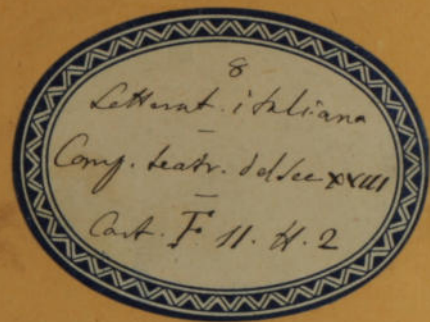 8
Letterat. italiana
Comp. teatr. del Sec XXVIII
Cart. F. 11. H. 2